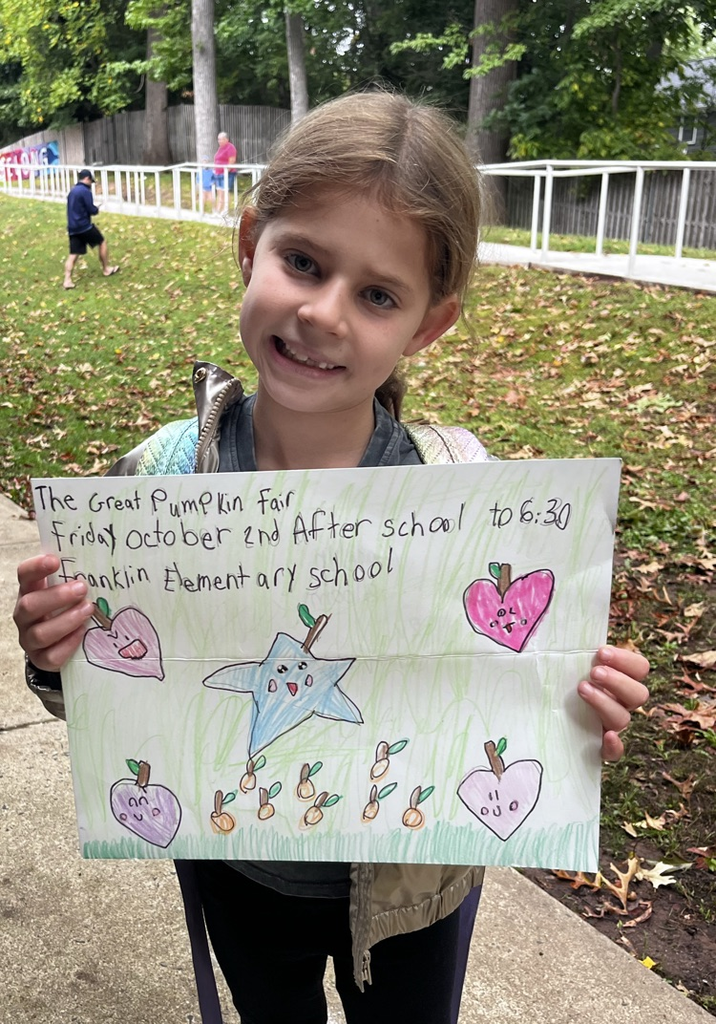 The Great Pumpkin Fair
Friday october 2nd After school to 6:30
Franklin Elementary school